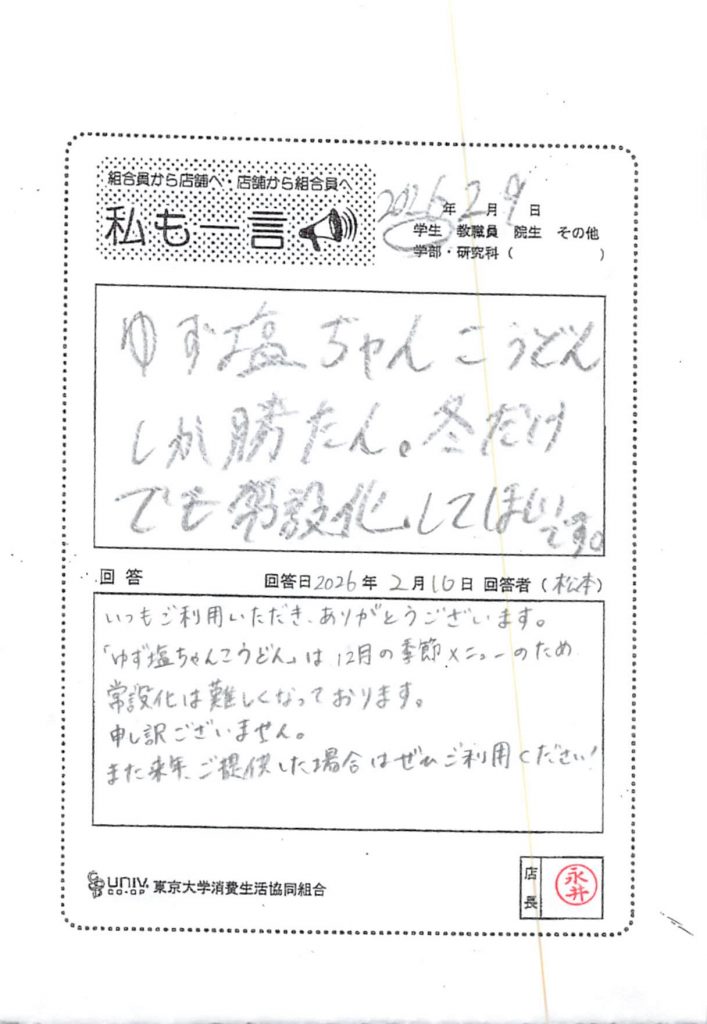 組合員から店舗へ・店舗から組合員へ
私も一言
2026年2月9日
学生 教職員 院生 その他
学部・研究科（ ）
ゆず塩ちゃんこうどん
しか勝たん。冬だけ
でも常設化してほしい
です。
回答 回答日2026年2月10日 回答者（松本）
いつもご利用いただき、ありがとうございます。
「ゆず塩ちゃんこうどん」は12月の季節メニューのため
常設化は難しくなっております。
申し訳ございません。
また来年、ご提供した場合はぜひご利用ください!
UNIV.
CO-OP
東京大学消費生活協同組合
店長
永井